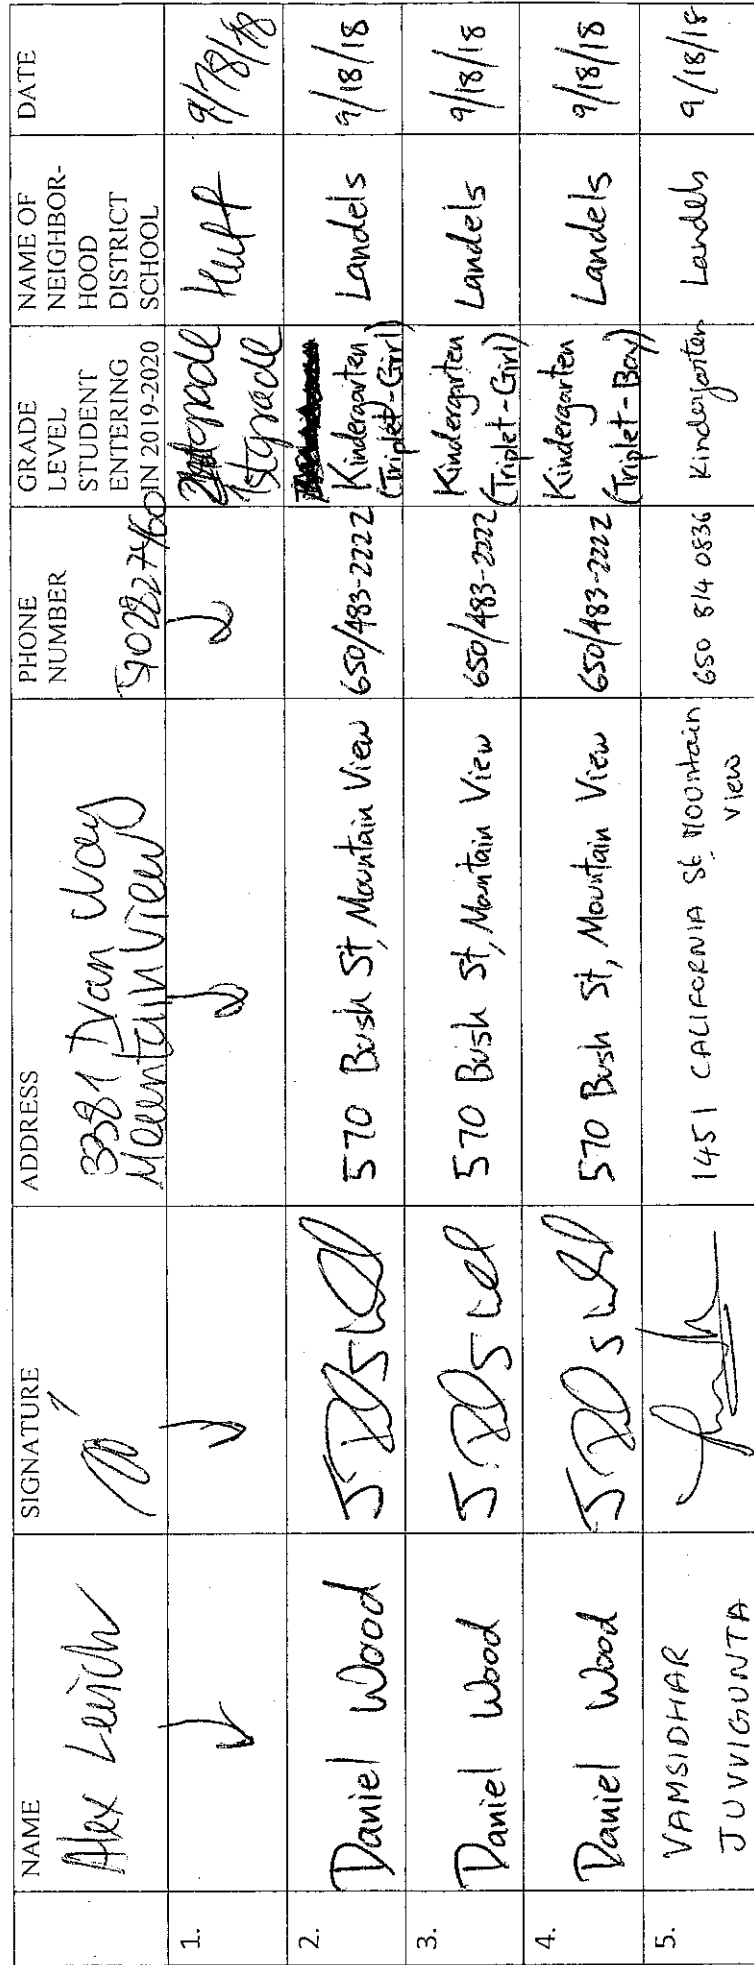 NAME
SIGNATURE
ADDRESS
PHONE
NUMBER
GRADE
LEVEL
STUDENT
ENTERING
IN 2019-2020
NAME OF
NEIGHBOR-
HOOD
DISTRICT
SCHOOL
DATE
Alex
Way
Mountain View
1.
1st grade
Huff
2.
Daniel Wood
570 Bush St, Mountain View
650/483-2222
Kindergarten
(Triplet-Girl)
Landels
9/18/18
3.
Daniel Wood
570 Bush St, Mountain View
650/483-2222
Kindergarten
(Triplet-Girl)
Landels
9/18/18
4.
Daniel Wood
570 Bush St, Mountain View
650/483-2222
Kindergarten
(Triplet-Boy)
Landels
9/18/18
5.
VAMSIDHAR
JUVVIGUNTA
1451 CALIFORNIA St. Mountain
View
650 814 0836
Kindergarten
Landels
9/18/18